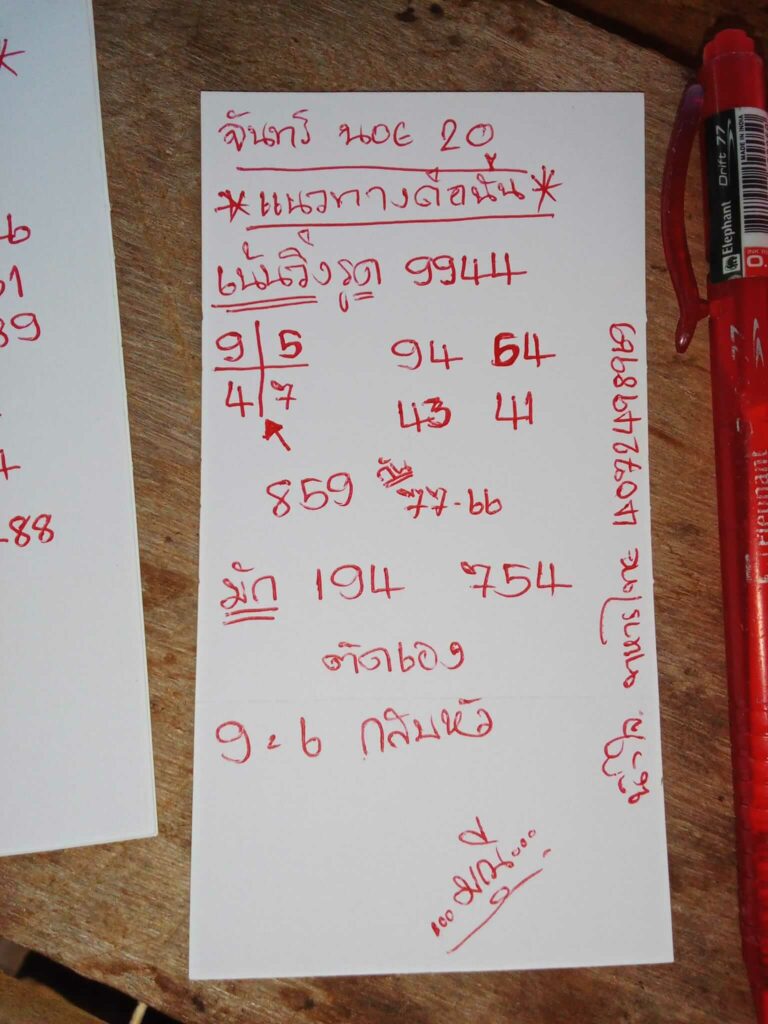 จันทร์ นอย 20
*แนวทางดือนั้น*
เน้นวิ่งรูด 9944
9 5
4 7
94 54
43 41
859
77-66
มัก 194 754
ตัดเอง
9=6 กลับหัว
...มณี...
6
1
39
4
-88
Elephant Drift 77
MADE IN INDIA